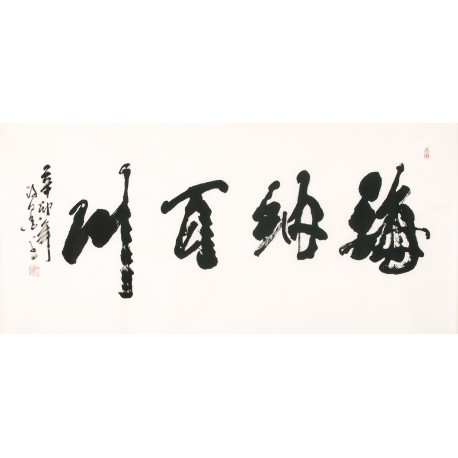 海纳百川
辛卯年